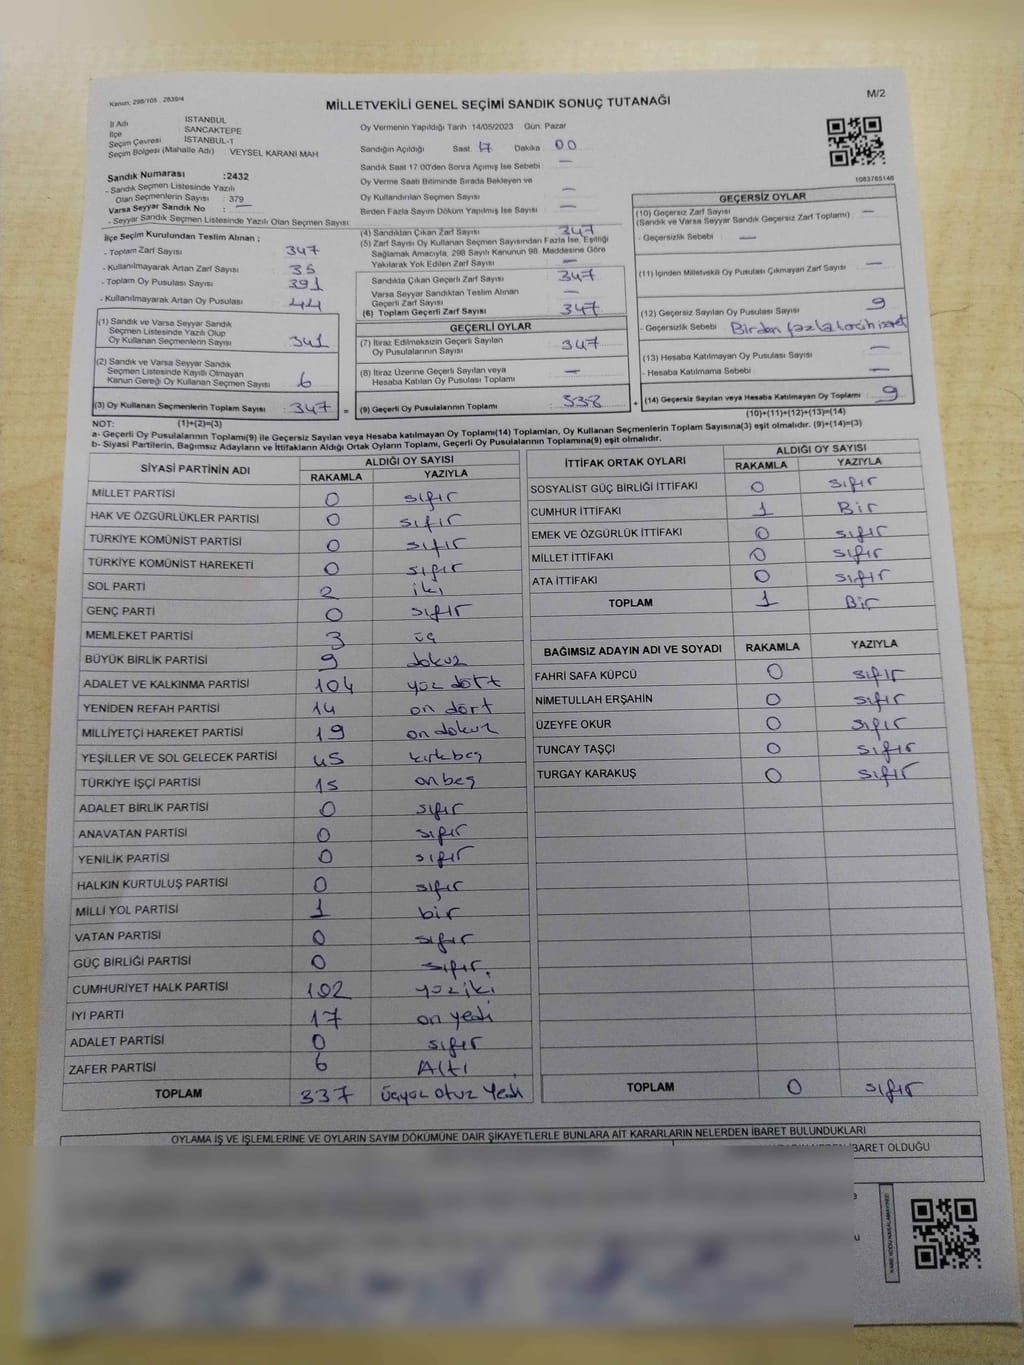 Kanun: 298/105 , 2839/4
MİLLETVEKİLİ GENEL SEÇİMİ SANDIK SONUÇ TUTANAĞI
M/2
İl Adı İSTANBUL
İlçe SANCAKTEPE
Seçim Çevresi İSTANBUL-1
Seçim Bölgesi (Mahalle Adı) : VEYSEL KARANİ MAH
Sandık Numarası :2432
- Sandık Seçmen Listesinde Yazılı
Olan Seçmenlerin Sayısı : 379
Varsa Seyyar Sandık No : —
- Seyyar Sandık Seçmen Listesinde Yazılı Olan Seçmen Sayısı
Oy Vermenin Yapıldığı Tarih :14/05/2023 Gün: Pazar
Sandığın Açıldığı Saat: 17 Dakika: 00
Sandık Saat 17:00'den Sonra Açımış İse Sebebi : —
Oy Verme Saati Bitiminde Sırada Bekleyen ve
Oy Kullandırılan Seçmen Sayısı —
Birden Fazla Sayım Döküm Yapılmış İse Sayısı —
1083765146
İlçe Seçim Kurulundan Teslim Alınan ;
- Toplam Zarf Sayısı 347
- Kullanılmayarak Artan Zarf Sayısı 35
- Toplam Oy Pusulası Sayısı 391
- Kullanılmayarak Artan Oy Pusulası 44
(1) Sandık ve Varsa Seyyar Sandık
Seçmen Listesinde Yazılı Olup
Oy Kullanan Seçmenlerin Sayısı 341
(2) Sandık ve Varsa Seyyar Sandık
Seçmen Listesinde Kayıtlı Olmayan
Kanun Gereği Oy Kullanan Seçmen Sayısı 6
(3) Oy Kullanan Seçmenlerin Toplam Sayısı : 347 =
(4) Sandıktan Çıkan Zarf Sayısı 347
(5) Zarf Sayısı Oy Kullanan Seçmen Sayısından Fazla İse, Eşitliği
Sağlamak Amacıyla, 298 Sayılı Kanunun 98. Maddesine Göre
Yakılarak Yok Edilen Zarf Sayısı —
Sandıkta Çıkan Geçerli Zarf Sayısı 347
Varsa Seyyar Sandıktan Teslim Alınan
Geçerli Zarf Sayısı —
(6) Toplam Geçerli Zarf Sayısı 347
GEÇERLİ OYLAR
(7) İtiraz Edilmeksizin Geçerli Sayılan
Oy Pusulalarının Sayısı 347
(8) İtiraz Üzerine Geçerli Sayılan veya
Hesaba Katılan Oy Pusulası Toplamı —
(9) Geçerli Oy Pusulalarının Toplamı 338 +
GEÇERSİZ OYLAR
(10) Geçersiz Zarf Sayısı
(Sandık ve Varsa Seyyar Sandık Geçersiz Zarf Toplamı) —
- Geçersizlik Sebebi : —
(11) İçinden Milletvekili Oy Pusulası Çıkmayan Zarf Sayısı —
(12) Geçersiz Sayılan Oy Pusulası Sayısı 9
- Geçersizlik Sebebi Birden fazla tercih işaret
(13) Hesaba Katılmayan Oy Pusulası Sayısı —
- Hesaba Katılmama Sebebi —
(14) Geçersiz Sayılan veya Hesaba Katılmayan Oy Toplamı 9
NOT: (1)+(2)=(3) (10)+(11)+(12)+(13)=(14)
a- Geçerli Oy Pusulalarının Toplamı(9) ile Geçersiz Sayılan veya Hesaba katılmayan Oy Toplamı(14) Toplamları, Oy Kullanan Seçmenlerin Toplam Sayısına(3) eşit olmalıdır. (9)+(14)=(3)
b- Siyasi Partilerin, Bağımsız Adayların ve İttifakların Aldığı Ortak Oyların Toplamı, Geçerli Oy Pusulalarının Toplamına(9) eşit olmalıdır.
SİYASİ PARTİNİN ADI ALDIĞI OY SAYISI
RAKAMLA YAZIYLA
MİLLET PARTİSİ 0 sıfır
HAK VE ÖZGÜRLÜKLER PARTİSİ 0 sıfır
TÜRKİYE KOMÜNİST PARTİSİ 0 sıfır
TÜRKİYE KOMÜNİST HAREKETİ 0 sıfır
SOL PARTİ 2 iki
GENÇ PARTİ 0 sıfır
MEMLEKET PARTİSİ 3 üç
BÜYÜK BİRLİK PARTİSİ 9 dokuz
ADALET VE KALKINMA PARTİSİ 104 yüz dört
YENİDEN REFAH PARTİSİ 14 on dört
MİLLİYETÇİ HAREKET PARTİSİ 19 on dokuz
YEŞİLLER VE SOL GELECEK PARTİSİ 45 kırkbeş
TÜRKİYE İŞÇİ PARTİSİ 15 onbeş
ADALET BİRLİK PARTİSİ 0 sıfır
ANAVATAN PARTİSİ 0 sıfır
YENİLİK PARTİSİ 0 sıfır
HALKIN KURTULUŞ PARTİSİ 0 sıfır
MİLLİ YOL PARTİSİ 1 bir
VATAN PARTİSİ 0 sıfır
GÜÇ BİRLİĞİ PARTİSİ 0 sıfır.
CUMHURİYET HALK PARTİSİ 102 yüziki
İYİ PARTİ 17 on yedi
ADALET PARTİSİ 0 sıfır
ZAFER PARTİSİ 6 Altı
TOPLAM 337 üçyüz otuz Yedi
İTTİFAK ORTAK OYLARI ALDIĞI OY SAYISI
RAKAMLA YAZIYLA
SOSYALİST GÜÇ BİRLİĞİ İTTİFAKI 0 sıfır
CUMHUR İTTİFAKI 1 Bir
EMEK VE ÖZGÜRLÜK İTTİFAKI 0 sıfır
MİLLET İTTİFAKI 0 sıfır
ATA İTTİFAKI 0 sıfır
TOPLAM 1 Bir
BAĞIMSIZ ADAYIN ADI VE SOYADI RAKAMLA YAZIYLA
FAHRİ SAFA KÜPCÜ 0 sıfır
NİMETULLAH ERŞAHİN 0 sıfır
ÜZEYFE OKUR 0 sıfır
TUNCAY TAŞÇI 0 sıfır
TURGAY KARAKUŞ 0 sıfır
TOPLAM 0 sıfır
OYLAMA İŞ VE İŞLEMLERİNE VE OYLARIN SAYIM DÖKÜMÜNE DAİR ŞİKAYETLERLE BUNLARA AİT KARARLARIN NELERDEN İBARET BULUNDUKLARI
İBARET OLDUĞU